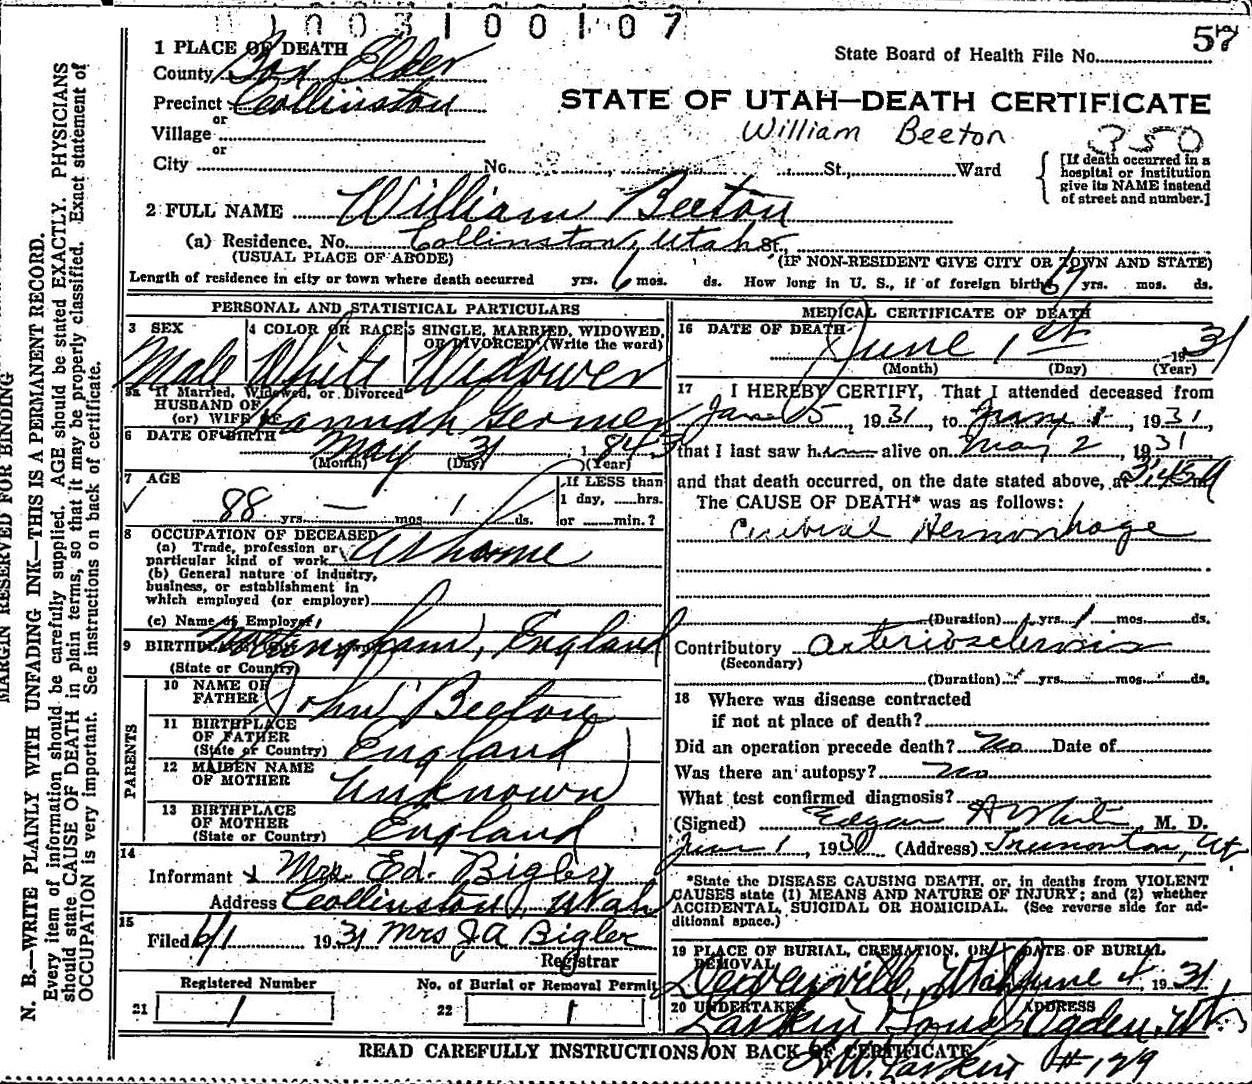 1003100107
57
State Board of Health File No.
1 PLACE OF DEATH
County Box Elder
Precinct Collinston
or
Village
or
City No. St., Ward
STATE OF UTAH—DEATH CERTIFICATE
William Beeton 350
[If death occurred in a
hospital or institution
give its NAME instead
of street and number.]
2 FULL NAME William Beeton
(a) Residence, No. Collinston, Utah St.,
(USUAL PLACE OF ABODE) (IF NON-RESIDENT GIVE CITY OR TOWN AND STATE)
Length of residence in city or town where death occurred yrs. 6 mos. ds. How long in U. S., if of foreign birth? yrs. mos. ds.
PERSONAL AND STATISTICAL PARTICULARS
3 SEX 4 COLOR OR RACE 5 SINGLE, MARRIED, WIDOWED,
OR DIVORCED (Write the word)
Male White Widower
5a If Married, Widowed, or Divorced
HUSBAND OF
(or) WIFE OF Hannah Germer
6 DATE OF BIRTH May 31, 1843
(Month) (Day) (Year)
7 AGE
88 yrs. — mos. 1 ds.
If LESS than
1 day, hrs.
or min.?
8 OCCUPATION OF DECEASED
(a) Trade, profession or
particular kind of work At home
(b) General nature of industry,
business, or establishment in
which employed (or employer)
(c) Name of Employer
9 BIRTHPLACE Nottingham, England
(State or Country)
PARENTS
10 NAME OF
FATHER John Beeton
11 BIRTHPLACE
OF FATHER
(State or Country) England
12 MAIDEN NAME
OF MOTHER Unknown
13 BIRTHPLACE
OF MOTHER
(State or Country) England
14
Informant Mrs. Ed. Bigler
Address Collinston, Utah
15
Filed 6/1 1931 Mrs J A Bigler
Registrar
Registered Number No. of Burial or Removal Permit
21 1 22 1
MEDICAL CERTIFICATE OF DEATH
16 DATE OF DEATH
June 1st 1931
(Month) (Day) (Year)
17 I HEREBY CERTIFY, That I attended deceased from
Jan 5, 1931, to June 1, 1931,
that I last saw him alive on May 2, 1931
and that death occurred, on the date stated above, at
The CAUSE OF DEATH* was as follows:
Cerebral Hemorrhage
(Duration) yrs. 1 mos. ds.
Contributory arteriosclerosis
(Secondary)
(Duration) yrs. mos. ds.
18 Where was disease contracted
if not at place of death?
Did an operation precede death? No Date of
Was there an autopsy? No
What test confirmed diagnosis?
(Signed) Edgar M. D.
June 1, 1930 (Address) Tremonton, Ut
*State the DISEASE CAUSING DEATH, or, in deaths from VIOLENT
CAUSES state (1) MEANS AND NATURE OF INJURY; and (2) whether
ACCIDENTAL, SUICIDAL OR HOMICIDAL. (See reverse side for ad-
ditional space.)
19 PLACE OF BURIAL, CREMATION, OR DATE OF BURIAL
REMOVAL
Deweyville, Utah June 4, 1931
20 UNDERTAKER ADDRESS
Larkin Sons Ogden, Ut.
READ CAREFULLY INSTRUCTIONS ON BACK OF CERTIFICATE
W. Larkin #129
MARGIN RESERVED FOR BINDING
N. B.—WRITE PLAINLY WITH UNFADING INK—THIS IS A PERMANENT RECORD.
Every item of information should be carefully supplied. AGE should be stated EXACTLY. PHYSICIANS
should state CAUSE OF DEATH in plain terms, so that it may be properly classified. Exact statement of
OCCUPATION is very important. See instructions on back of certificate.